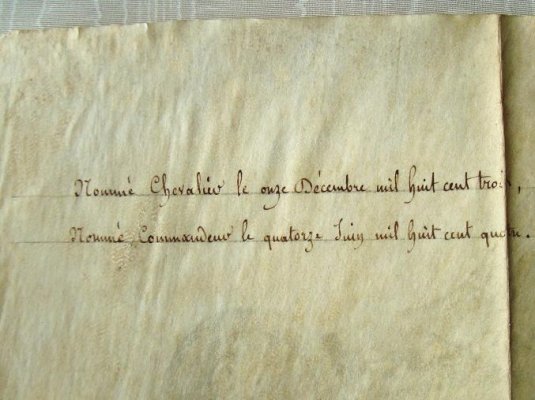 Nommé Chevalier le onze Décembre mil huit cent trois,
Nommé Commandeur le quatorze Juin mil huit cent quatre.